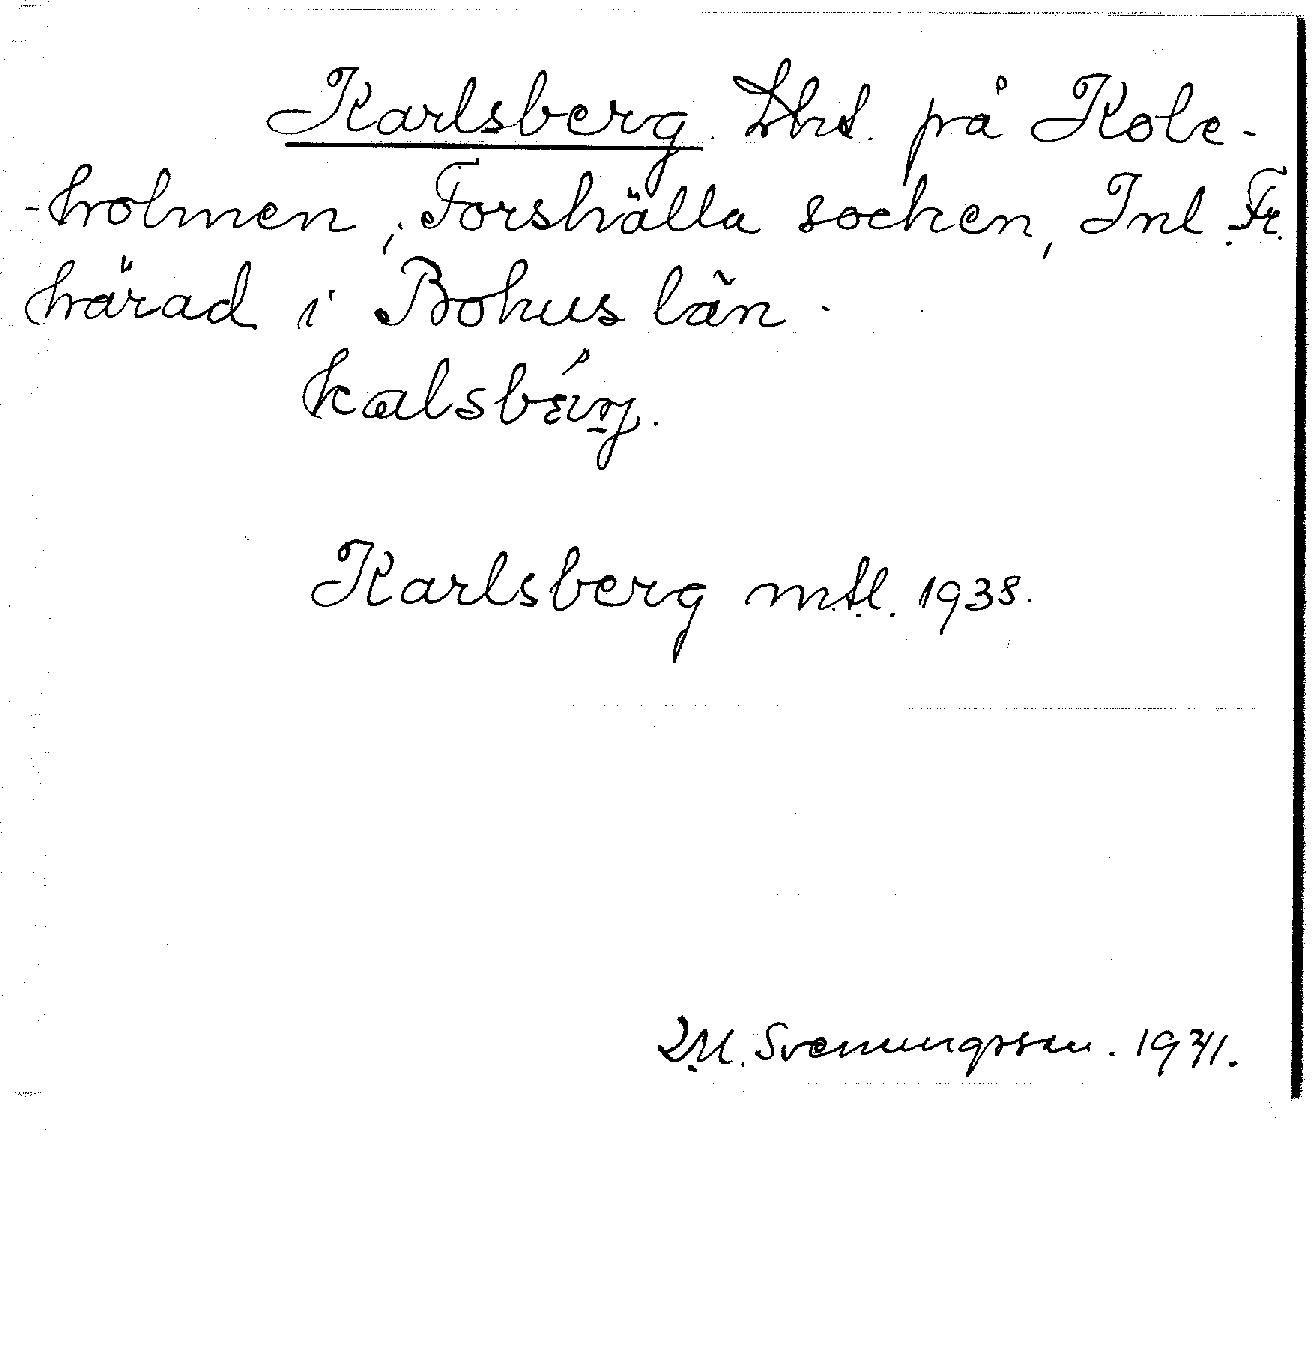 Karlsberg. Lht. på Kole-
-holmen, Forshälla socken, Inl. Fr.
härad i Bohus län.
Karlsberg mtl. 1938.
Svenungsson. 1941.